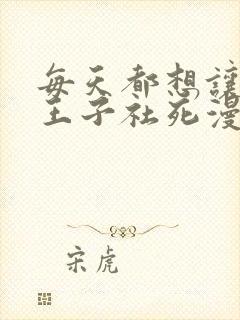 每天都想讓
王子社死漫
宋虎